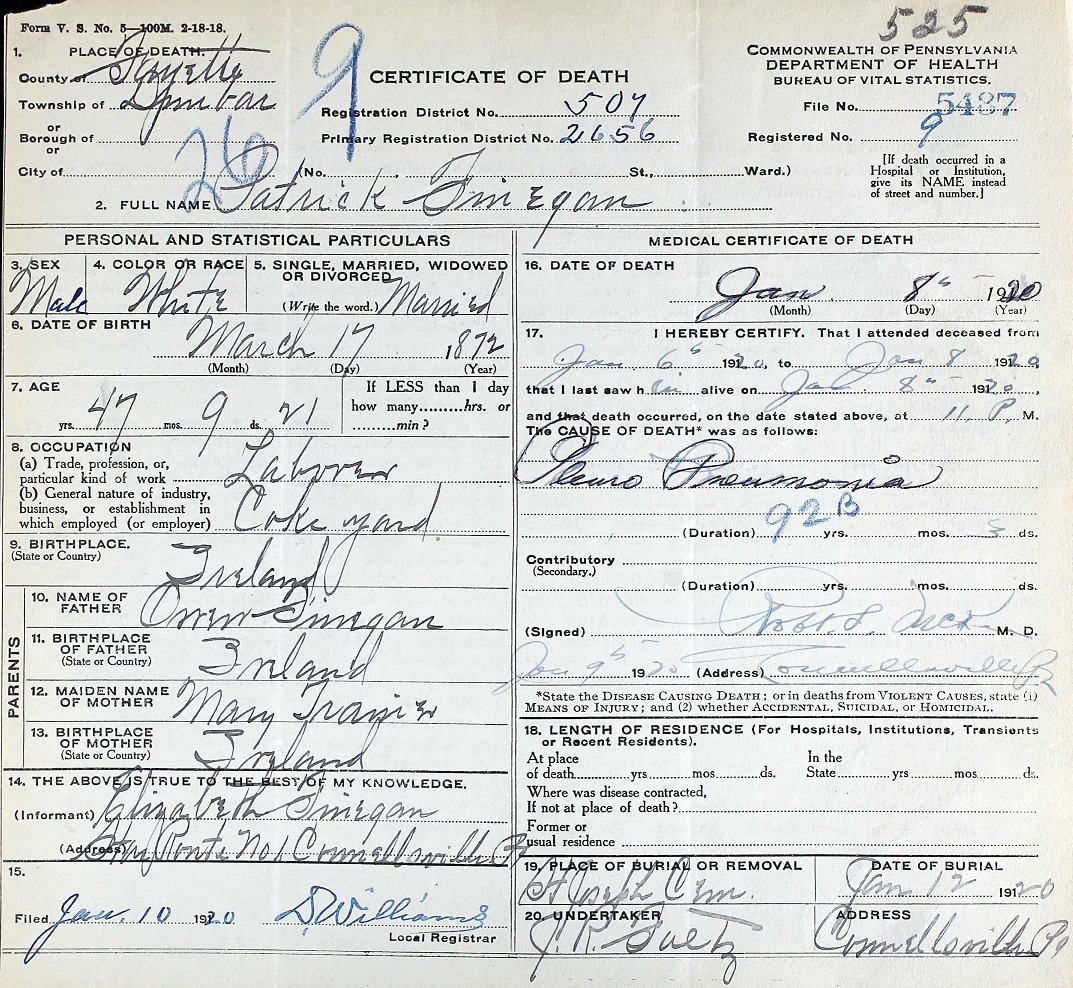 Form V. S. No. 5—100M. 2-18-18.
525
1. PLACE OF DEATH.
County of Fayette
Township of Dunbar
or
Borough of
or
City of
9
26
CERTIFICATE OF DEATH
Registration District No. 507
Primary Registration District No. 2656
(No. St., Ward.)
COMMONWEALTH OF PENNSYLVANIA
DEPARTMENT OF HEALTH
BUREAU OF VITAL STATISTICS.
File No. 5487
Registered No. 9
[If death occurred in a
Hospital or Institution,
give its NAME instead
of street and number.]
2. FULL NAME Patrick Finegan
PERSONAL AND STATISTICAL PARTICULARS
3. SEX
Male
4. COLOR OR RACE
White
5. SINGLE, MARRIED, WIDOWED
OR DIVORCED
(Write the word.) Married
6. DATE OF BIRTH
March 17 1872
(Month) (Day) (Year)
7. AGE
47 yrs. 9 mos. 21 ds.
If LESS than 1 day
how many........hrs. or
........min?
8. OCCUPATION
(a) Trade, profession, or,
particular kind of work Laborer
(b) General nature of industry,
business, or establishment in
which employed (or employer) Coke yard
9. BIRTHPLACE.
(State or Country)
Ireland
PARENTS
10. NAME OF
FATHER
Owen Finegan
11. BIRTHPLACE
OF FATHER
(State or Country)
Ireland
12. MAIDEN NAME
OF MOTHER
Mary
13. BIRTHPLACE
OF MOTHER
(State or Country)
Ireland
14. THE ABOVE IS TRUE TO THE BEST OF MY KNOWLEDGE.
(Informant) Elizabeth Finegan
(Address) Route No 1 Connellsville Pa
15.
Filed Jan. 10 1920 D Williams
Local Registrar
MEDICAL CERTIFICATE OF DEATH
16. DATE OF DEATH
Jan 8th 1920
(Month) (Day) (Year)
17. I HEREBY CERTIFY. That I attended deceased from
Jan 6th 1920, to Jan 8 1920,
that I last saw him alive on Jan 8th 1920,
and that death occurred, on the date stated above, at 11 P M.
The CAUSE OF DEATH* was as follows:
Pleuro Pneumonia
92B
(Duration) yrs. mos. 3 ds.
Contributory
(Secondary.)
(Duration) yrs. mos. ds.
(Signed) M. D.
Jan 9th 1920 (Address) Connellsville Pa
*State the DISEASE CAUSING DEATH; or in deaths from VIOLENT CAUSES, state (1)
MEANS OF INJURY; and (2) whether ACCIDENTAL, SUICIDAL, OR HOMICIDAL.
18. LENGTH OF RESIDENCE (For Hospitals, Institutions, Transients
or Recent Residents).
At place
of death yrs mos ds.
In the
State yrs mos ds.
Where was disease contracted,
If not at place of death?
Former or
usual residence
19. PLACE OF BURIAL OR REMOVAL
St Joseph Cem.
DATE OF BURIAL
Jan 12 1920
20. UNDERTAKER
J. R. Foltz
ADDRESS
Connellsville Pa